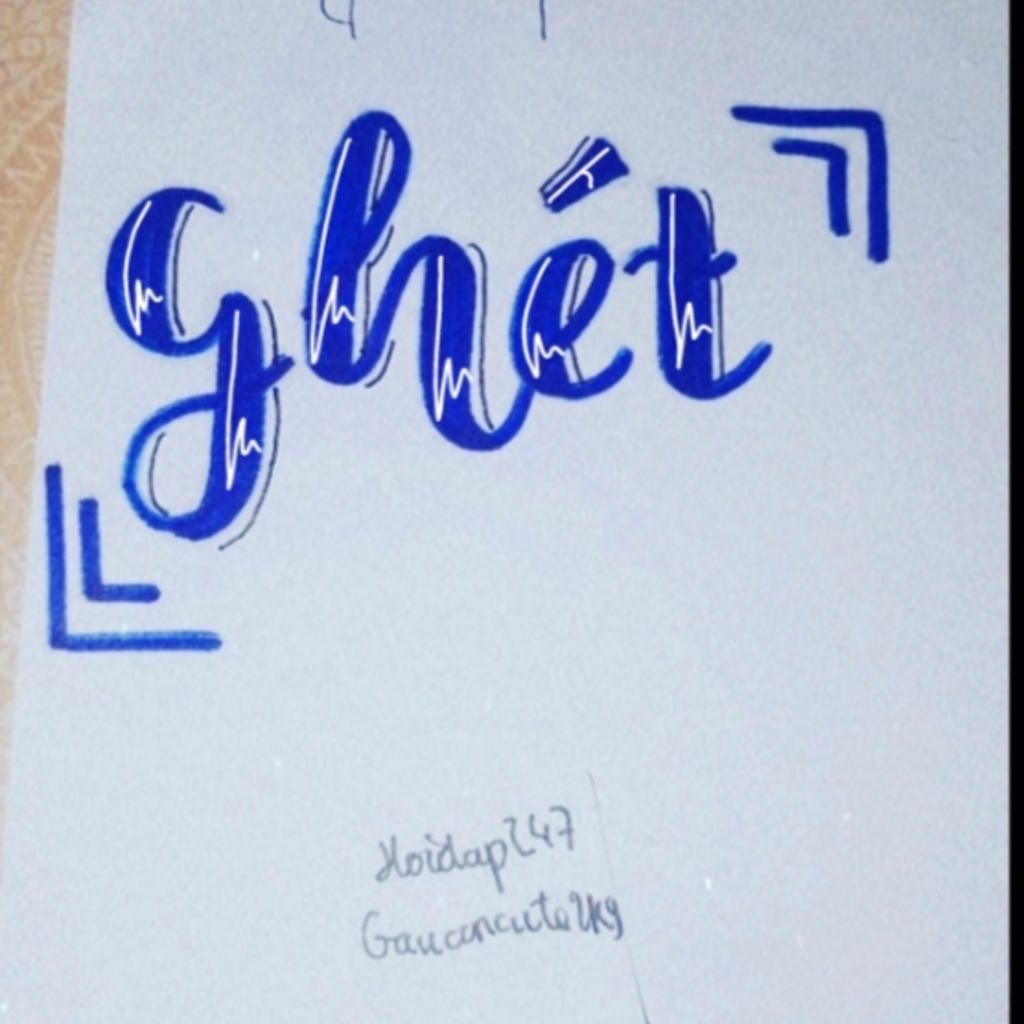 ghét
Hoidap247
Gauconcute2k9